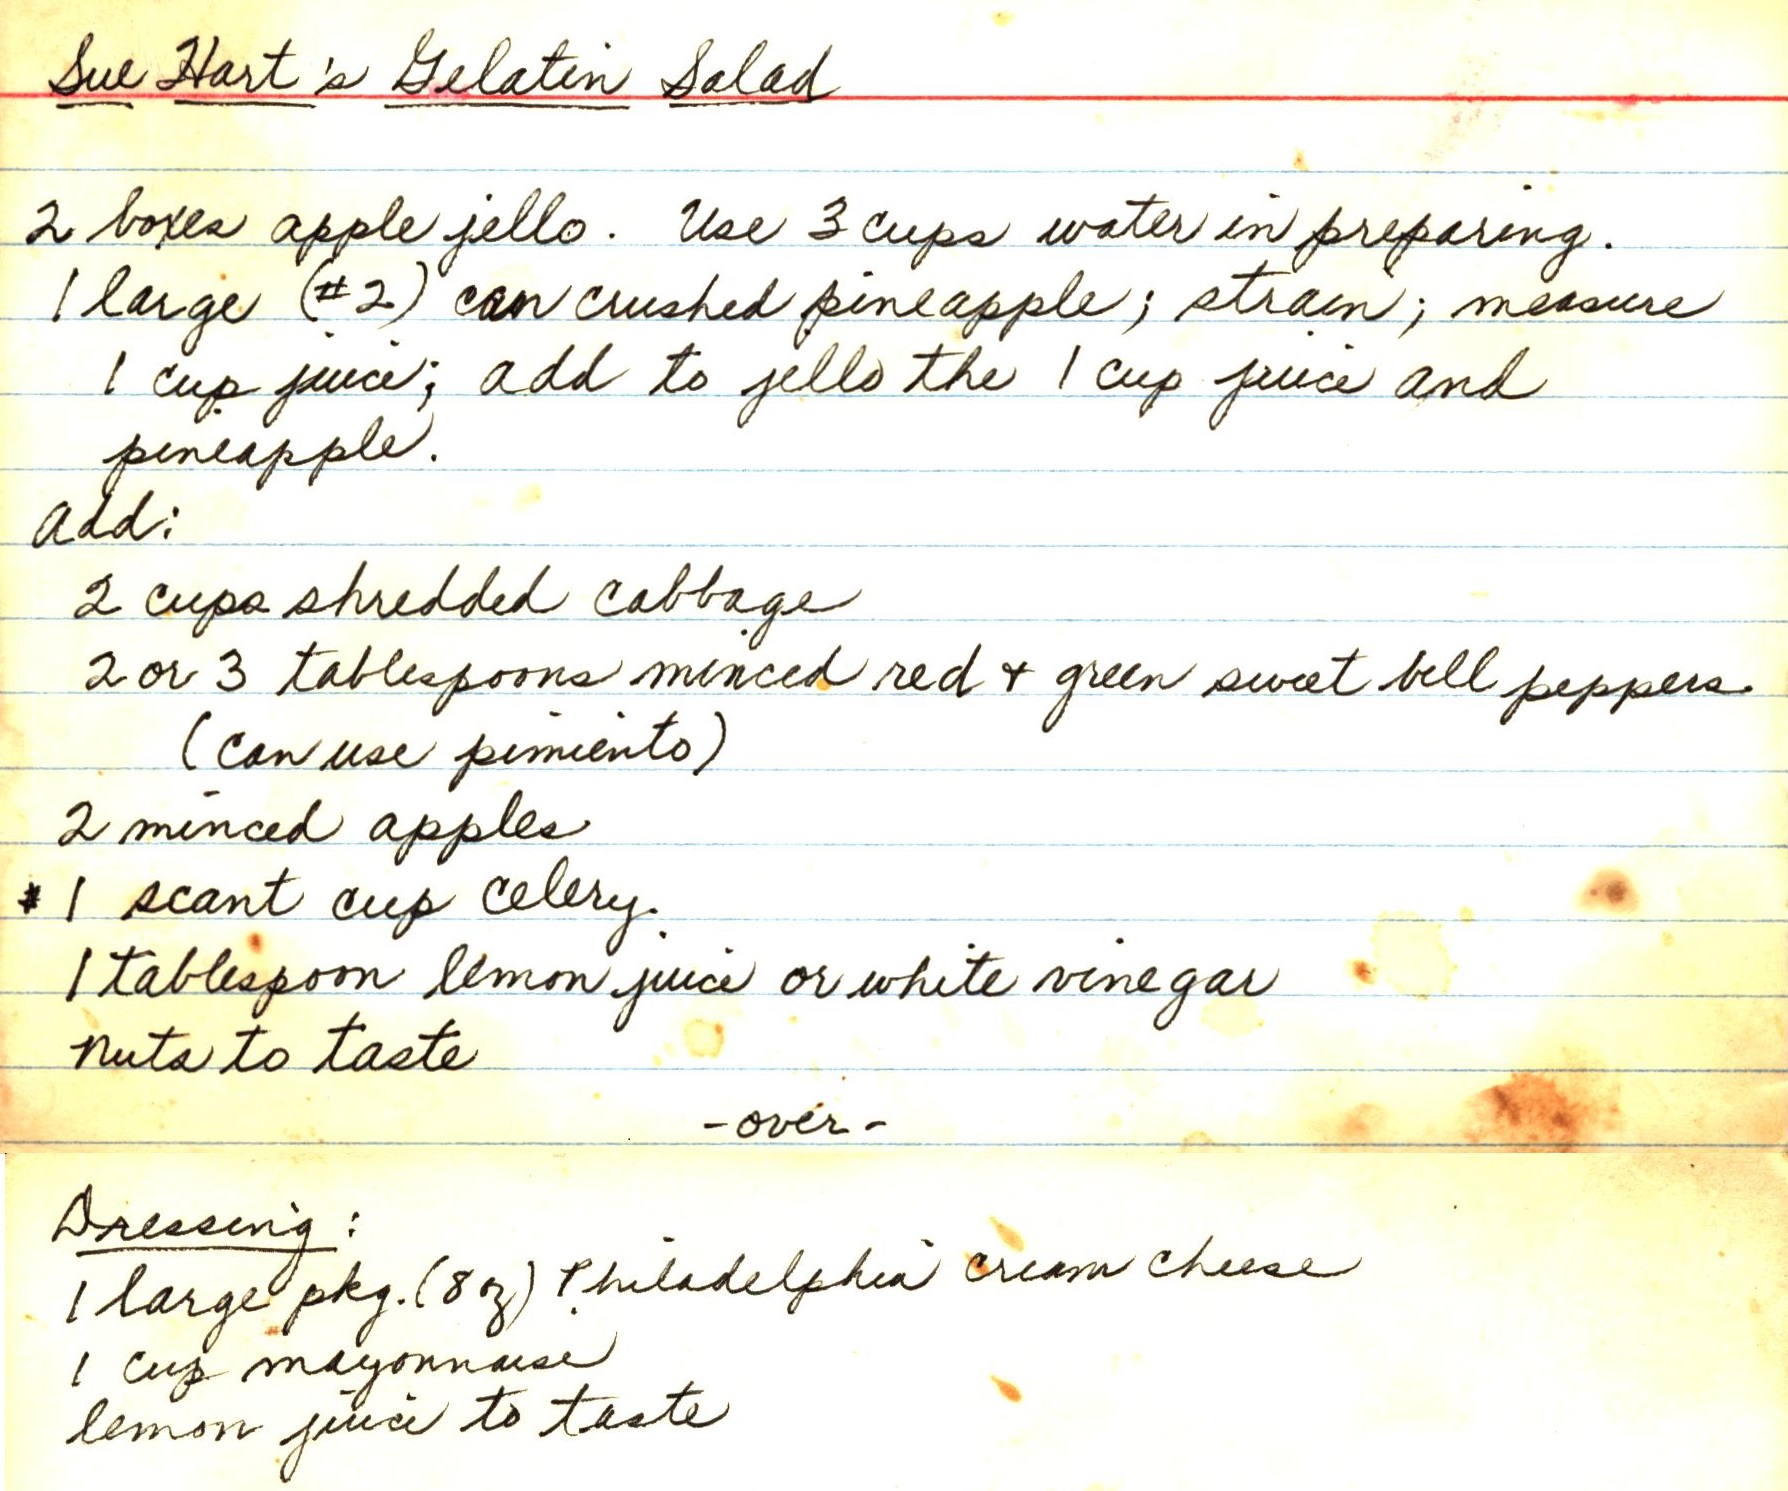 Sue Hart's Gelatin Salad
2 boxes apple jello. Use 3 cups water in preparing.
1 large (#2) can crushed pineapple; strain; measure
1 cup juice; add to jello the 1 cup juice and
pineapple.
Add:
2 cups shredded cabbage
2 or 3 tablespoons minced red + green sweet bell peppers.
(can use pimiento)
2 minced apples
* 1 scant cup celery.
1 tablespoon lemon juice or white vinegar
Nuts to taste
- over -
Dressing:
1 large pkg. (8 oz) Philadelphia cream cheese
1 cup mayonnaise
lemon juice to taste